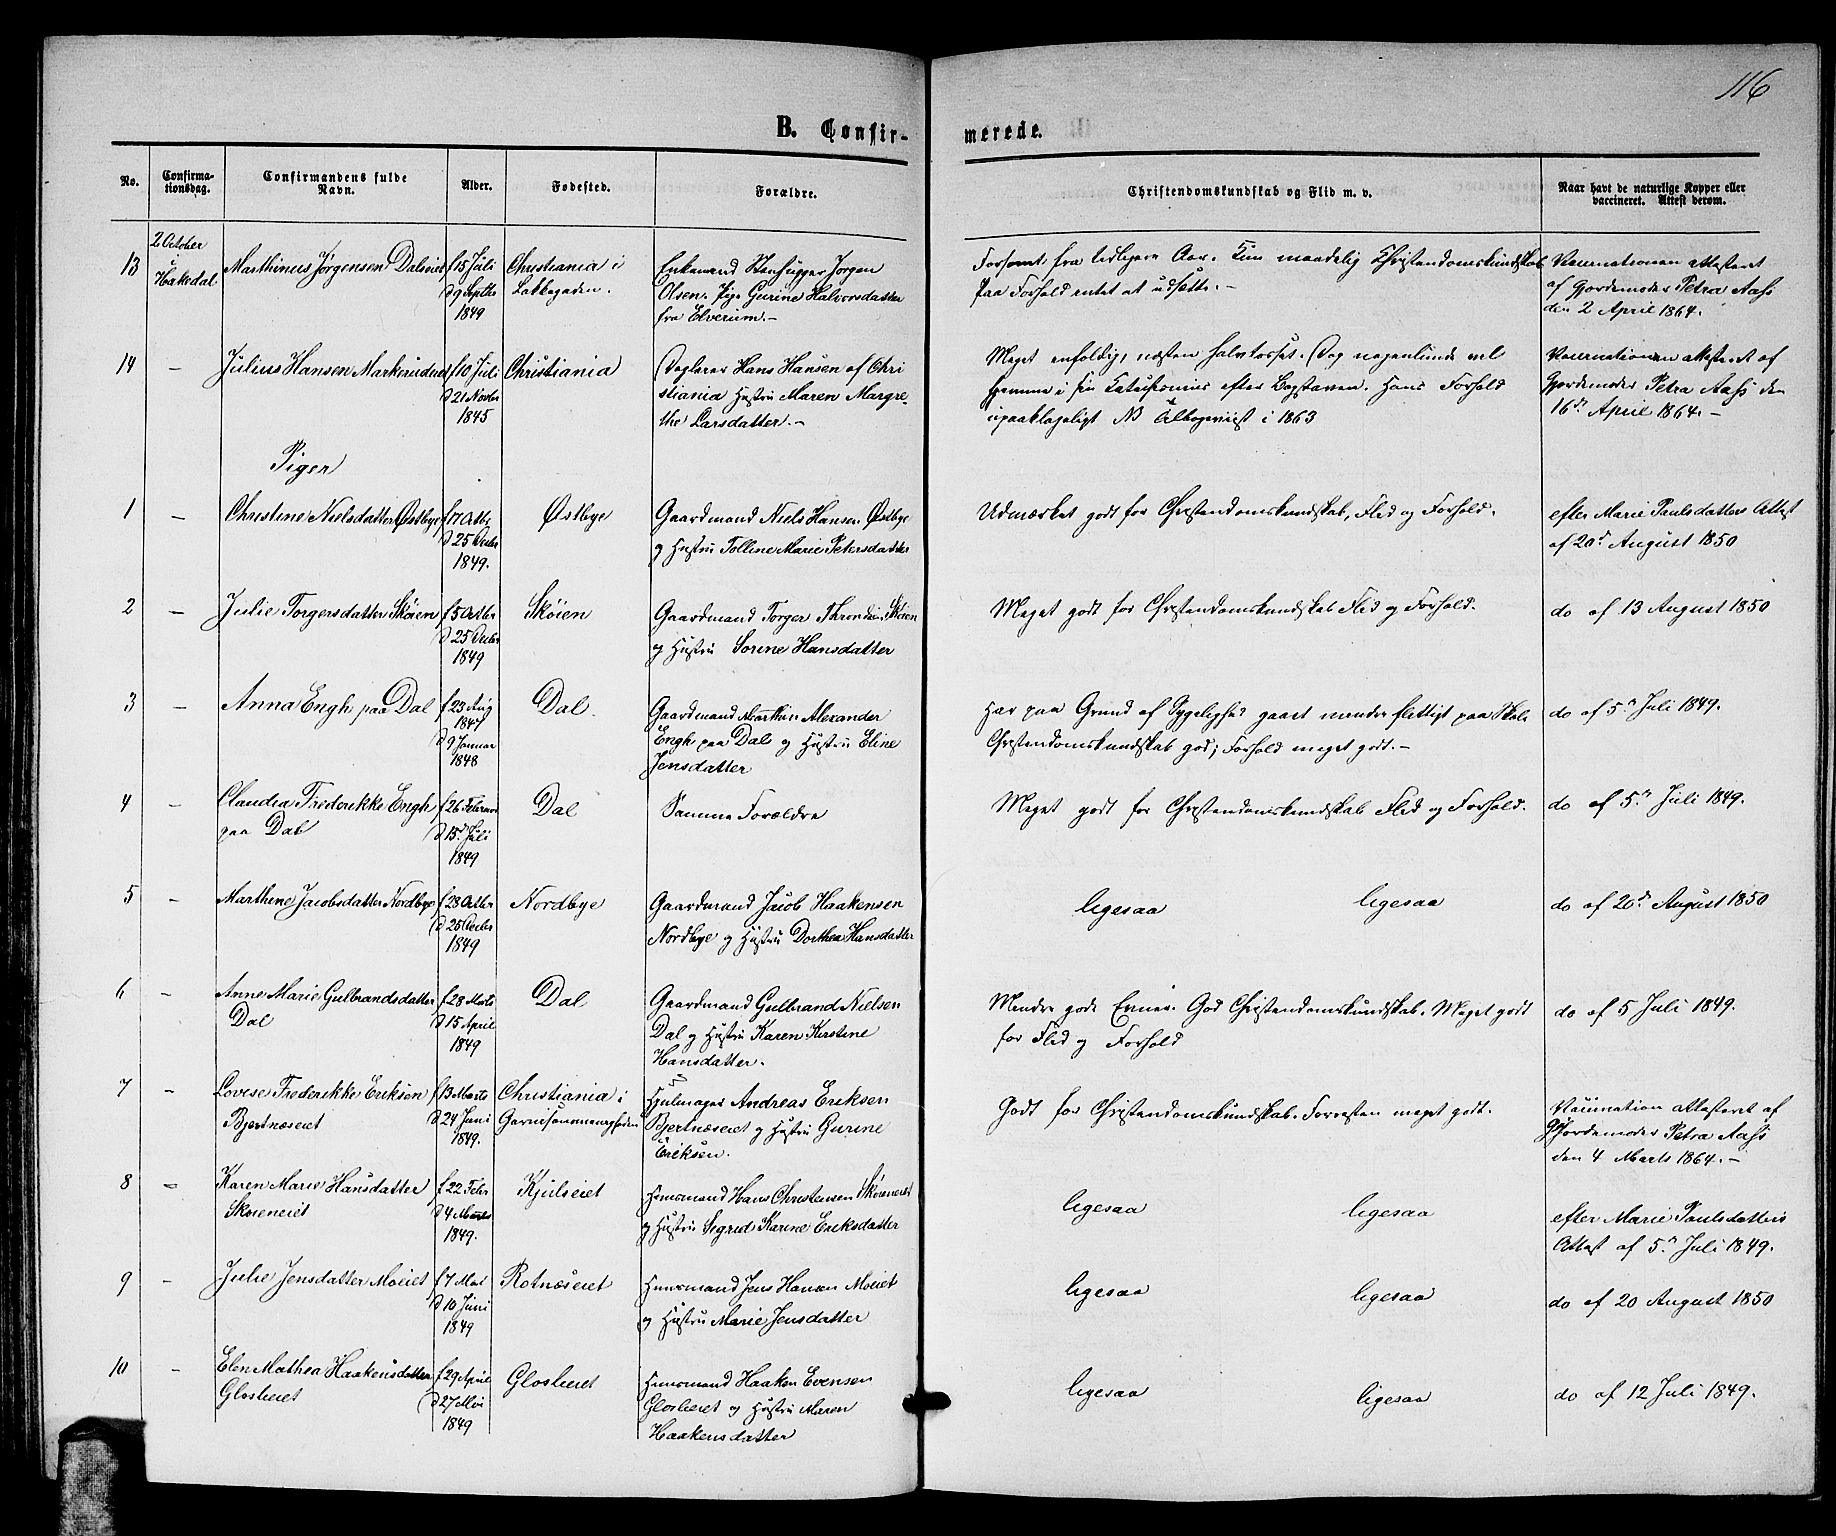 116
B. Confir-
merede.
No.
Confirma-
tionsdag.
Confirmandens fulde
Navn.
Alder.
Fødested.
Forældre.
Christendomskundskab og Flid m. v.
Naar havt de naturlige Kopper eller
vaccineret. Attest derom.
2 October
i
Hakedal
13
Marthinus Jørgensen Dalseiet
f 15 Juli
d 9 Septbr
1849
Christiania i
Lakkegaden.
Enkemand Stenhugger Jørgen
Olsen. Pige Gurine Halvorsdatter
fra Elverum.-
Forsømt fra tidligere Aar. Kun maadelig Christendomskundskab
paa Forhold intet at udsætte. -
Vaccinationen attesteret
af Gjordemoder Petra Aass
den 2 April 1864.
14
-
Julius Hansen Markerudeiet
f 10 Juli
d 21 Novbr
1845
Christiania
Daglejer Hans Hansen af Chri
stiania Hustru Maren Margre-
the Larsdatter.-
Meget enfoldig, næsten halvtosset. Dog nogenlunde vel
hjemme i sin Katechismus efter Bogstaven. Hans Forhold
upaaklageligt NB i 1863
Vaccinationen attesteret af
Gjordemoder Petra Aass den
16de April 1864.-
Piger
1
-
Christine Nielsdatter Østbye
f 17 Octbr
d 25 Decbr
1849.
Østbye
Gaardmand Niels Hansen Østbye
og Hustru Tolline Marie Petersdatter
Udmærket godt for Christendomskundskab, Flid og Forhold.
efter Marie Paulsdatters Attest
af 20de August 1850
2
-
Julie Torgersdatter Sköien
f 5 Octbr
d 25 Decbr
1849
Sköien
Gaardmand Torger Throndsen Sköien
og Hustru Sorine Hansdatter
Meget godt for Christendomskundskab Flid og Forhold.
do af 13 August 1850
3
-
Anna Engh paa Dal
f 23 Aug
1847
d 9 Januar
1848
Dal.
Gaardmand Marthin Alexander
Engh paa Dal og Hustru Eline
Jensdatter
Har paa Grund af Sygelighed gaaet mindre flittigt paa Skole
Christendomskundskab god; Forhold meget godt.-
do af 5te Juli 1849.
4
-
Claudia Frederikke Engh
paa Dal
f 26 Februar
d 15de Juli
1849
Dal
Samme Forældre
Meget godt for Christendomskundskab Flid og Forhold.
do af 5te Juli 1849.
5
-
Marthine Jacobsdatter Nordbye
f 23 Octbr
d 26 Decbr
1849
Nordbye
Gaardmand Jacob Haakensen
Nordbye og Hustru Dorthea Hansdatter
ligesaa
ligesaa
do af 20de August 1850
6
-
Anne Marie Gulbrandsdatter
Dal
f 28 Marts
d 15 April
1849
Dal
Gaardmand Gulbrand Nielsen
Dal og Hustru Karen Kirstine
Hansdatter.
Mindre gode Evner. God Christendomskundskab. Meget godt
for Flid og Forhold
do af 5 Juli 1849.
7
-
Lovise Frederikke Eriksen
Bjertnæseiet
f 13 Marts
d 24 Juni
1849.
Christiania i
Garnisonmenigheden
Hjulmager Andreas Eriksen
Bjertnæseiet og Hustru Gurine
Eriksen.
Godt for Christendomskundskab. Forresten meget godt.
Vaccination attesteret af
Gjordemoder Petra Aass
den 4 Marts 1864.-
8
-
Karen Marie Hansdatter
Skøieneiet
f 22 Febr
d 4 Marts
1849.
Kjulseiet
Huusmand Hans Christensen Skøieneiet
og Hustru Sigrid Karine Eriksdatter
ligesaa
ligesaa
efter Marie Paulsdatters
Attest af 5te Juli 1849.
9
-
Julie Jensdatter Moeiet
f 7 Mai
d 10 Juni
1849
Rotnæseiet
Huusmand Jens Hansen Moeiet
og Hustru Marie Jensdatter
ligesaa
ligesaa
do af 20 August 1850
10
-
Elen Mathea Haakensdatter
Gloslieiet
f 29 April
d 27 Mai
1849
Gloslieiet
Huusmand Haaken Evensen
Gloslieiet og Hustru Maren
Haakensdatter
ligesaa
ligesaa
do af 12 Juli 1849.